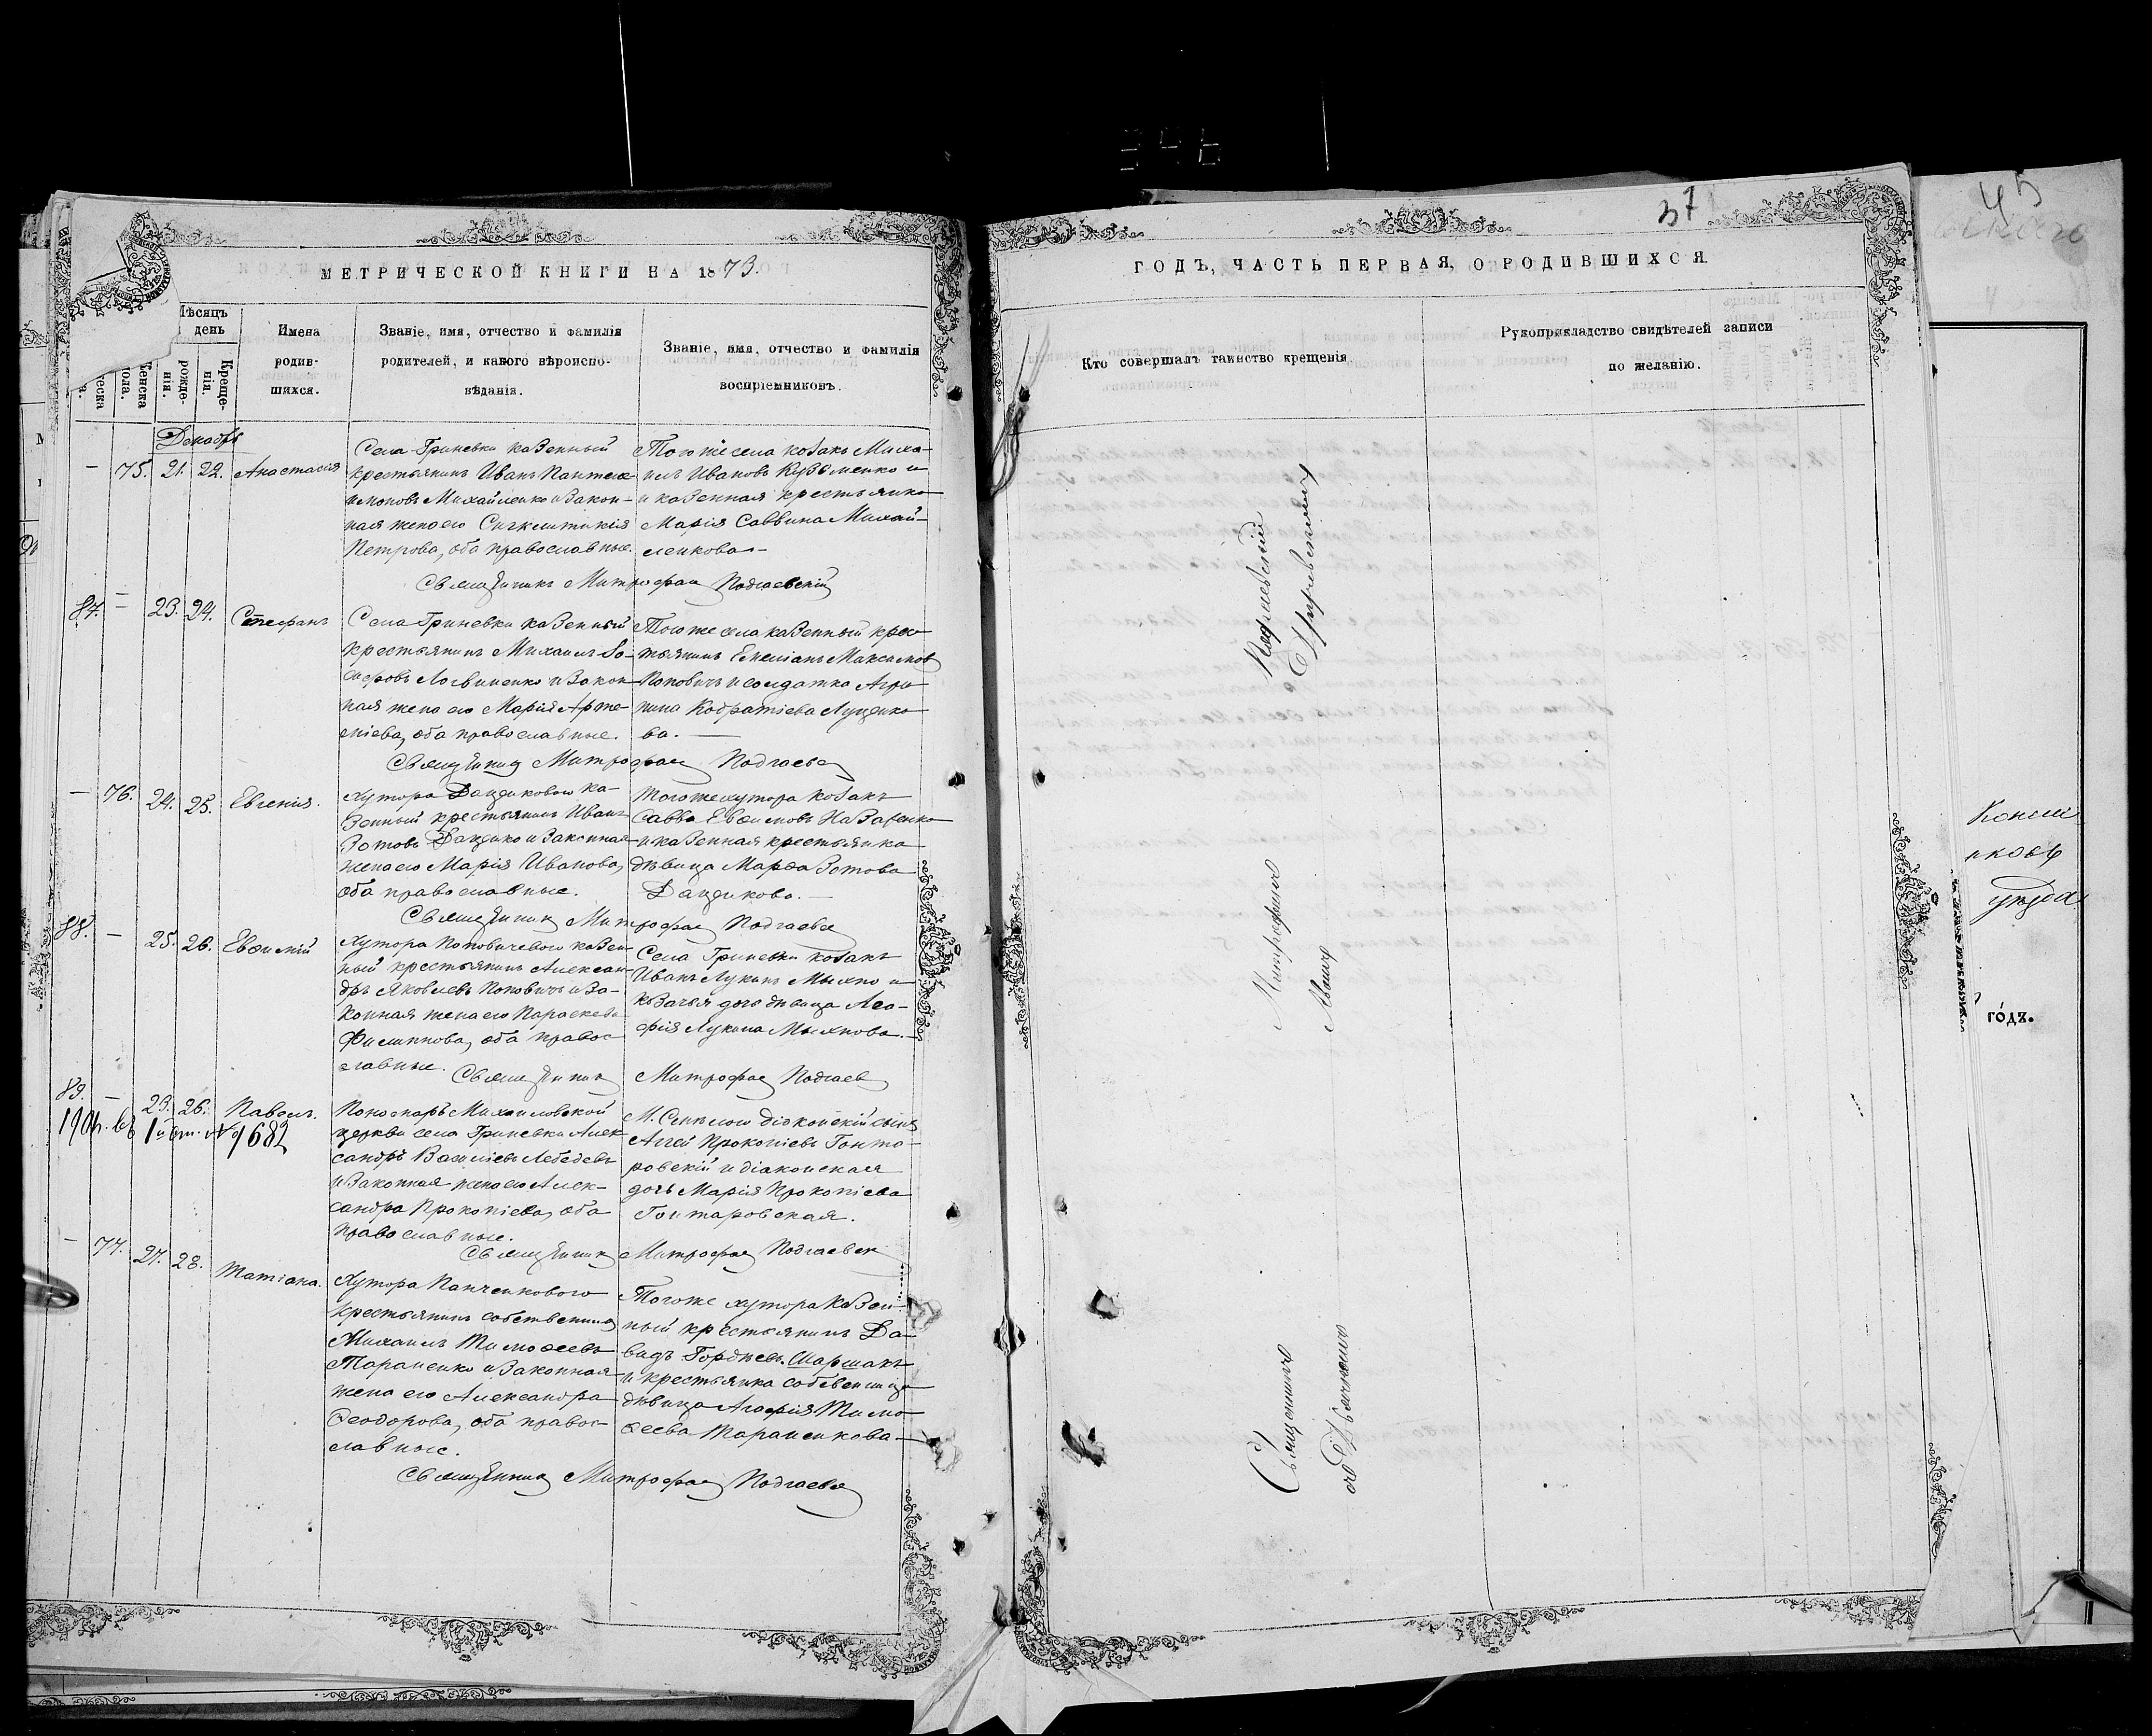 37
45
МЕТРИЧЕСКОЙ КНИГИ НА 1873.
ГОДЪ, ЧАСТЬ ПЕРВАЯ, О РОДИВШИХСЯ.
Мѣсяцъ
день
рожде-
нія.
Креще-
нія.
Имена
родив-
шихся.
Званіе, имя, отчество и фамилія
родителей, и какого вѣроиспо-
вѣданія.
Званіе, имя, отчество и фамилія
воспріемниковъ.
Кто совершалъ таинство крещенія
Рукоприкладство свидѣтелей записи
по желанію.
Декабрь
— 75. 21. 22. Анастасія
Села Гриневки казенный
крестьянинъ Иванъ Пантеле-
имоновъ Михайленко и закон-
ная жена его Синклитикія
Петрова, оба православные.
Того же села козакъ Миха-
илъ Ивановъ Кузьменко и
и казенная крестьянка
Марія Саввина Михай-
ленкова—
Священникъ Митрофан Подгаевскій
87. — 23. 24. Стефанъ
Села Гриневки казенный
крестьянинъ Михаилъ Іо-
сифовъ Логвиненко и закон-
ная жена его Марія Арте-
міева, оба православные.
Того же села казенный крес-
тьянинъ Емеліанъ Максимов
Поповичъ и солдатка Агри-
пина Кодратіева Луценко-
ва.—
Священник Митрофан Подгаевс
— 76. 24. 25. Евгенія.
Хутора Даценкового ка-
зенный крестьянинъ Иванъ
Зотовъ Даценко и законная
жена его Марія Иванова,
оба православные.
Того же хутора козакъ
Савва Евѳимовъ Назаренко
и казенная крестьянка
дѣвица Марѳа Зотова
Даценкова.—
Священник Митрофан Подгаевск
88. — 25. 26. Евѳимій
Хутора Поповичевого казен-
ный крестьянинъ Алексан-
дръ Яковлевъ Поповичъ и за-
конная жена его Параскева
Филиппова, оба правос-
лавные.
Села Гриневки козакъ
Иванъ Лукинъ Мыхно и
козачья дочь дѣвица Ага-
фія Лукина Мыхнова.—
Священник Митрофан Подгаев
89. — 23. 26. Павелъ.
№ 9682
Пономарь Михаиловской
церкви села Гриневки Алек-
сандръ Василіевъ Лебедевъ
и законная жена его Алек-
сандра Прокопіева, оба
православные.
М. Смѣлого діаконскій сынъ
Аггей Прокопіевъ Гонта-
ровскій и діаконская
дочь Марія Прокопіева
Гонтаровская.
Священник Митрофан Подгаевск
— 77. 27. 28. Татіана.
Хутора Панченкового
крестьянинъ собственник
Михаилъ Тимоѳеевъ
Тараненко и законная
жена его Александра
Ѳеодорова, оба правос-
лавные.
Того же хутора казен-
ный крестьянинъ Да-
видъ Гордѣевъ Шаршакъ
и крестьянка собственница
дѣвица Агафія Тимо-
ѳеева Тараненкова—
Священник Митрофан Подгаевск
Священникъ Митрофанъ Подгаевскій
годъ.
уѣзда